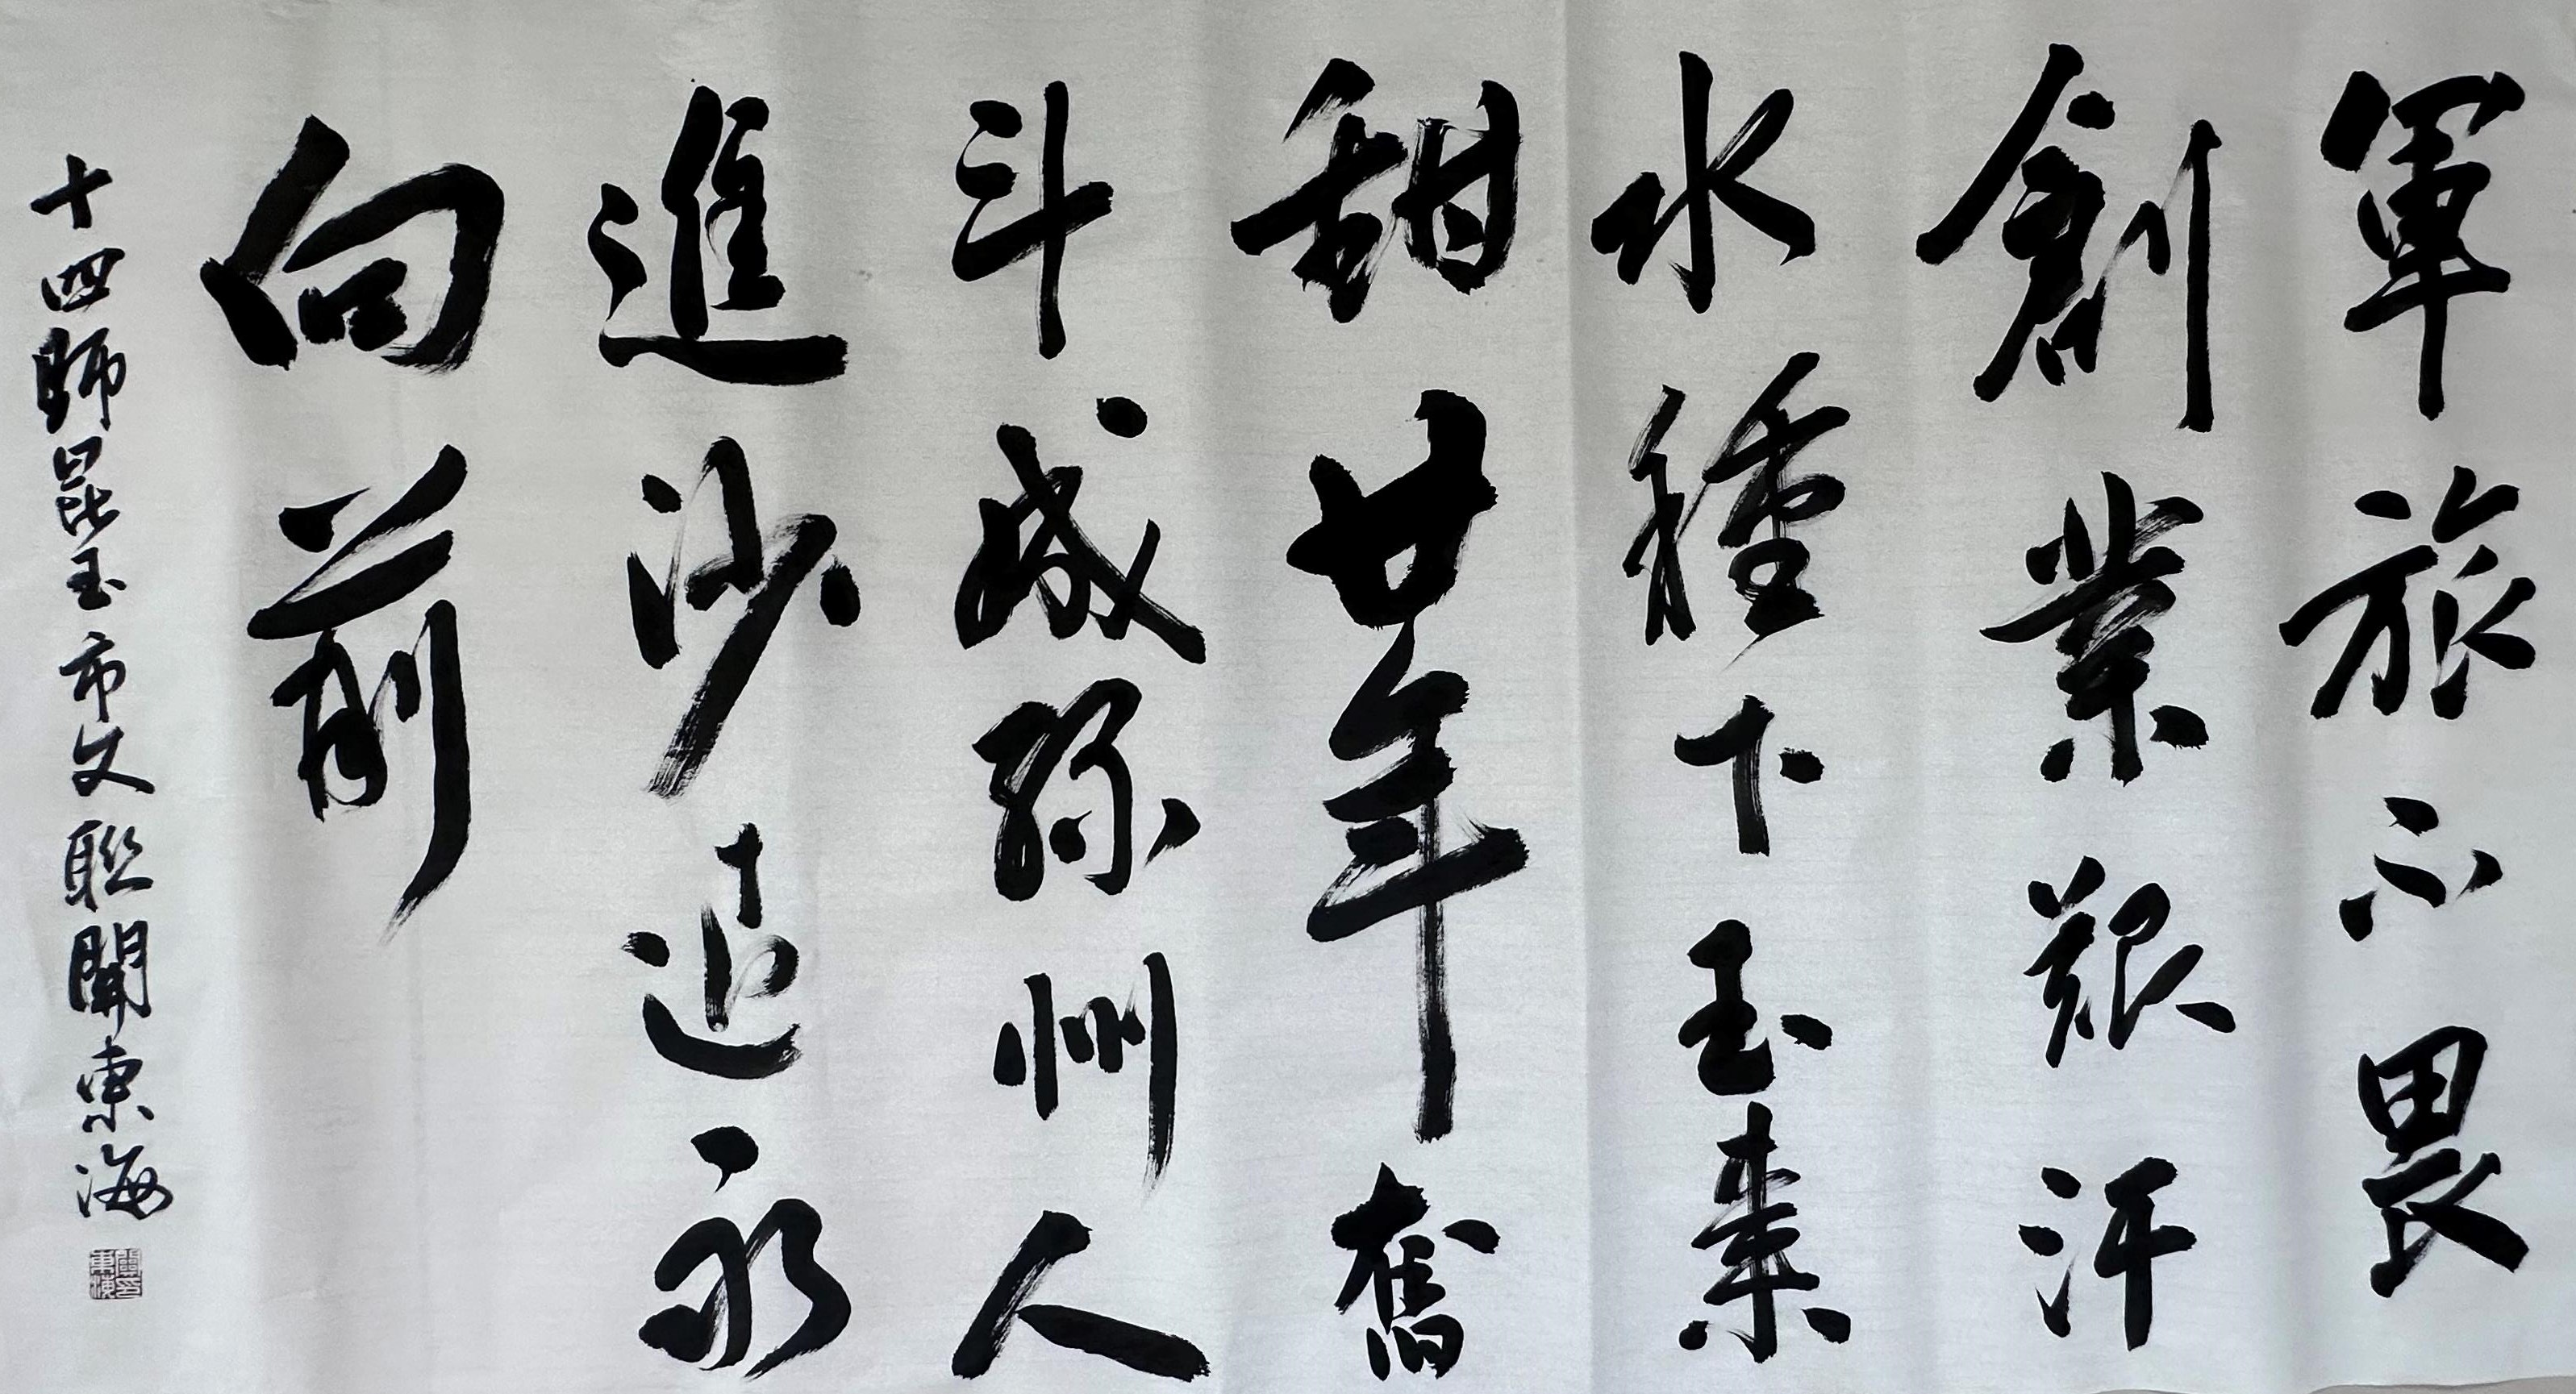 軍旅不畏
創業艱汗
水種下玉棗
甜廿年奮
斗成綠洲人
進沙退永
向前
十四師昆玉市文聯聞東海